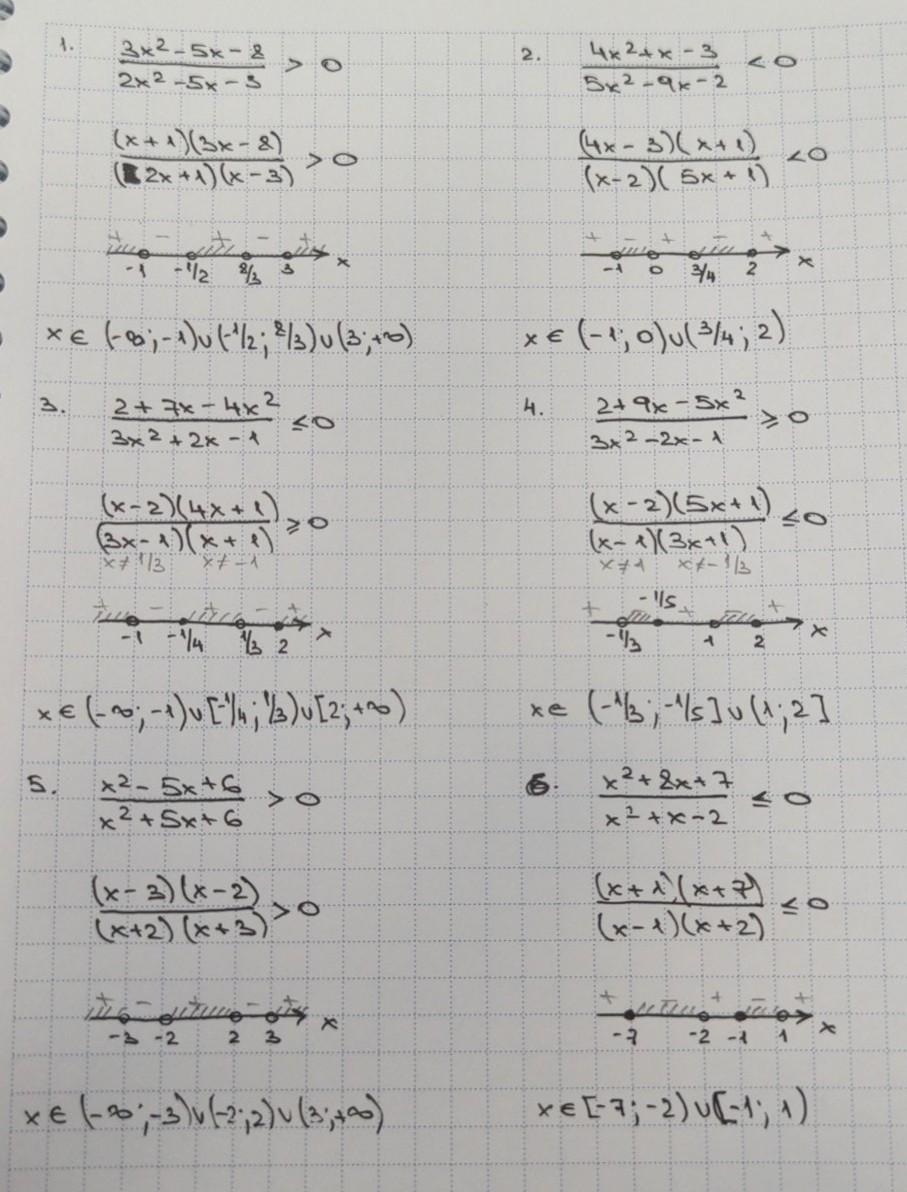 1. (3x² - 5x - 8)/(2x² - 5x - 3) > 0
(x + 1)(3x - 8)/(2x + 1)(x - 3) > 0
+ - + - +
-1 -1/2 8/3 3 x
x ∈ (-∞; -1) ∪ (-1/2; 8/3) ∪ (3; +∞)
2. (4x² + x - 3)/(5x² - 9x - 2) < 0
(4x - 3)(x + 1)/(x - 2)(5x + 1) < 0
+ - + - +
-1 0 3/4 2 x
x ∈ (-1; 0) ∪ (3/4; 2)
3. (2 + 7x - 4x²)/(3x² + 2x - 1) ≤ 0
(x - 2)(4x + 1)/(3x - 1)(x + 1) ≥ 0
x ≠ 1/3 x ≠ -1
+ - + - +
-1 -1/4 1/3 2 x
x ∈ (-∞; -1) ∪ [-1/4; 1/3) ∪ [2; +∞)
4. (2 + 9x - 5x²)/(3x² - 2x - 1) ≥ 0
(x - 2)(5x + 1)/(x - 1)(3x + 1) ≤ 0
x ≠ 1 x ≠ -1/3
+ - + - +
-1/3 -1/5 1 2 x
x ∈ (-1/3; -1/5] ∪ (1; 2]
5. (x² - 5x + 6)/(x² + 5x + 6) > 0
(x - 3)(x - 2)/(x + 2)(x + 3) > 0
+ - + - +
-3 -2 2 3 x
x ∈ (-∞; -3) ∪ (-2; 2) ∪ (3; +∞)
6. (x² + 8x + 7)/(x² + x - 2) ≤ 0
(x + 1)(x + 7)/(x - 1)(x + 2) ≤ 0
+ - + - +
-7 -2 -1 1 x
x ∈ [-7; -2) ∪ [-1; 1)